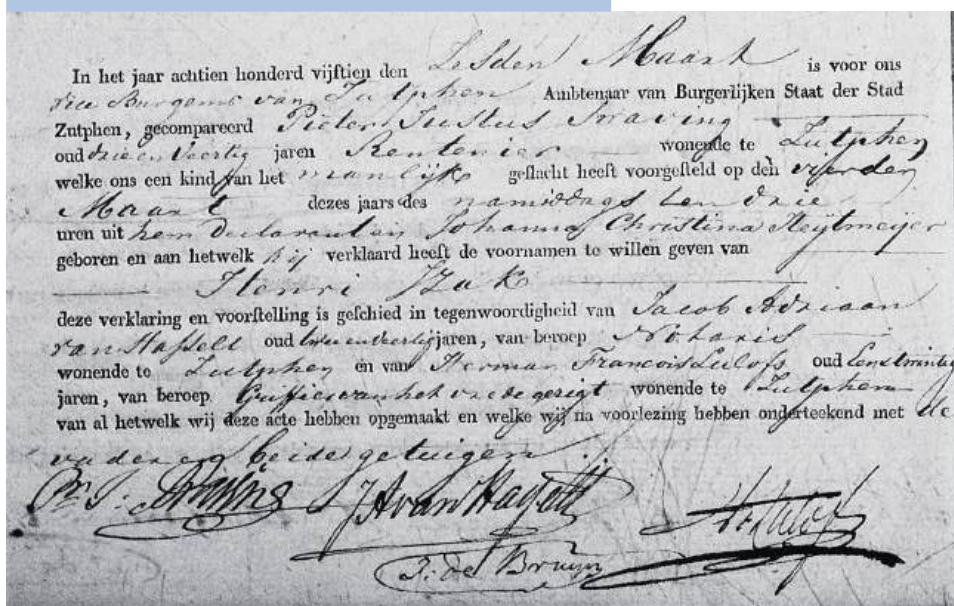 In het jaar achtien honderd vijftien den Zesden Maart is voor ons
vice Burgemr van Zutphen Ambtenaar van Burgerlijken Staat der Stad
Zutphen, gecompareerd Pieter Justus Swaving
oud drie en Veertig jaren Rentenier wonende te Zutphen
welke ons een kind van het manlijk geslacht heeft voorgesteld op den vierden
Maart dezes jaars des namiddags ten drie
uren uit hem Declarant en Johanna Christina Heijtmeijer
geboren en aan hetwelk hij verklaard heeft de voornamen te willen geven van
Henri Izak
deze verklaring en voorstelling is geschied in tegenwoordigheid van Jacob Adriaan
van Hasselt oud twee en veertig jaren, van beroep Notaris
wonende te Zutphen en van Herman Francois Lulofs oud Eenstwintig
jaren, van beroep Griffier van het vredegerigt wonende te Zutphen
van al hetwelk wij deze acte hebben opgemaakt en welke wij na voorlezing hebben onderteekend met de
vader en beide getuigen
Pr. J. Swaving JA van Hasselt
J. de Bruyn